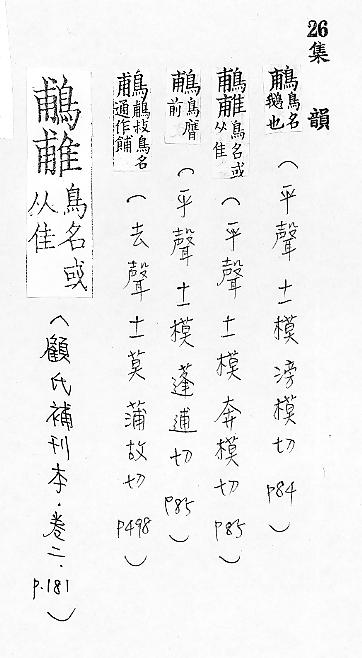 26集韻
鵏鳥名鵝也（平聲十一模滂模切P84）
鵏䧵鳥名或从隹（平聲十一模奔模切P85）
鵏鳥膺前（平聲十一模蓬逋切P85）
鵏鵏䳁鳥名通作餔（去聲十一莫蒲故切P498）
鵏䧵鳥名或从隹（顧氏補刊本．卷二．P.181）